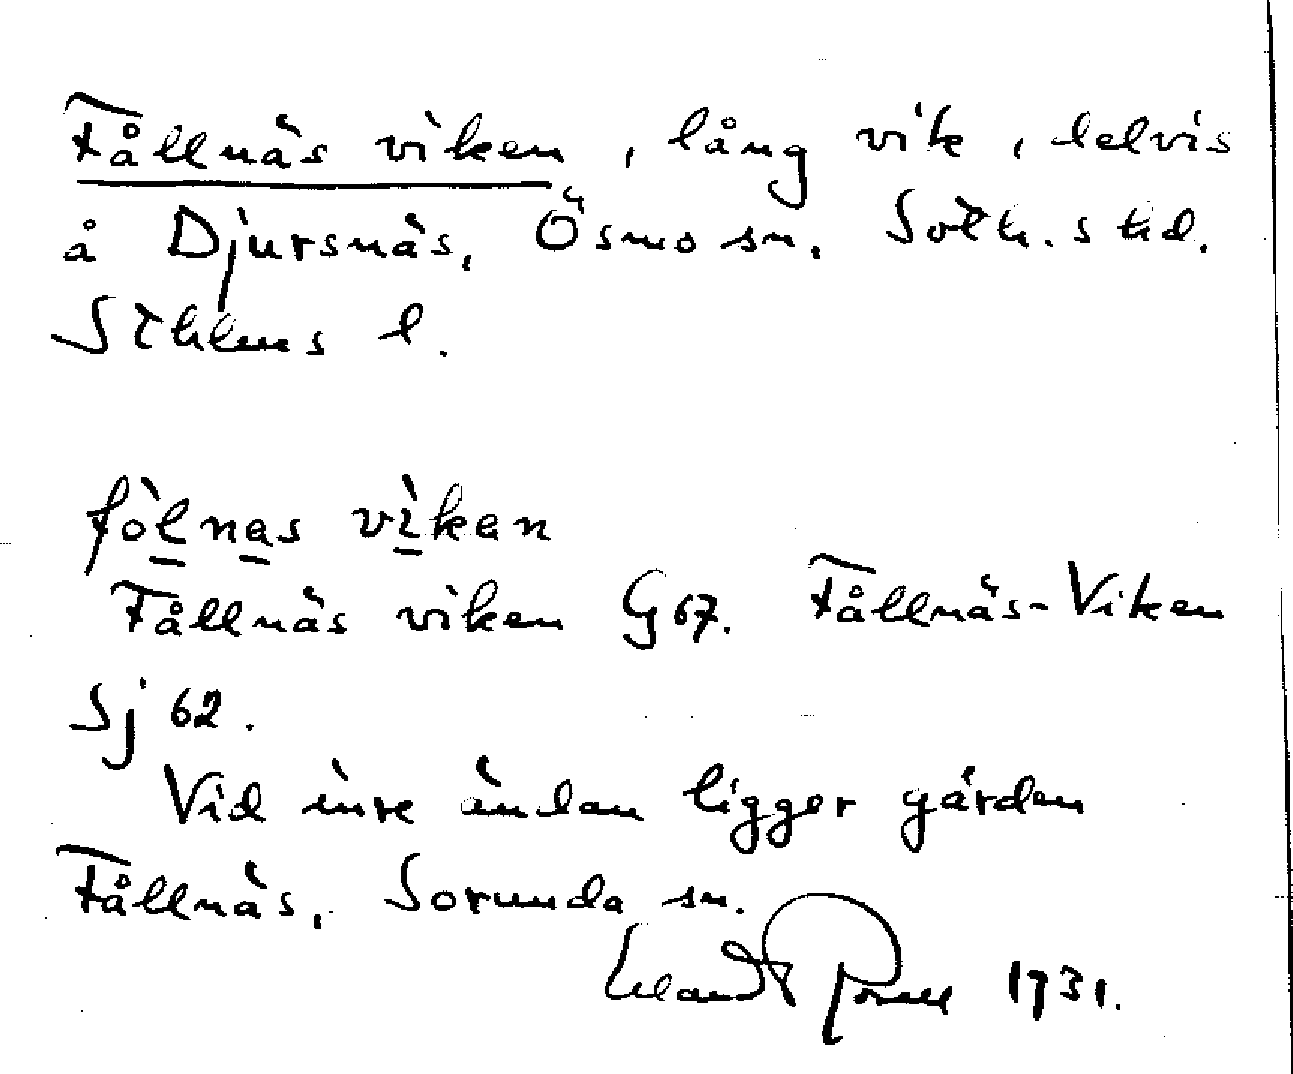 Fållnäs viken, lång vik, delvis
å Djursnäs, Ösmo sn. Soth. s hd.
Sthlms l.
fo̱lna̱s vi̱kan
Fållnäs viken G 67. Fållnäs-Viken
Sj 62.
Vid inre ändan ligger gården
Fållnäs, Sorunda sn.
1931.